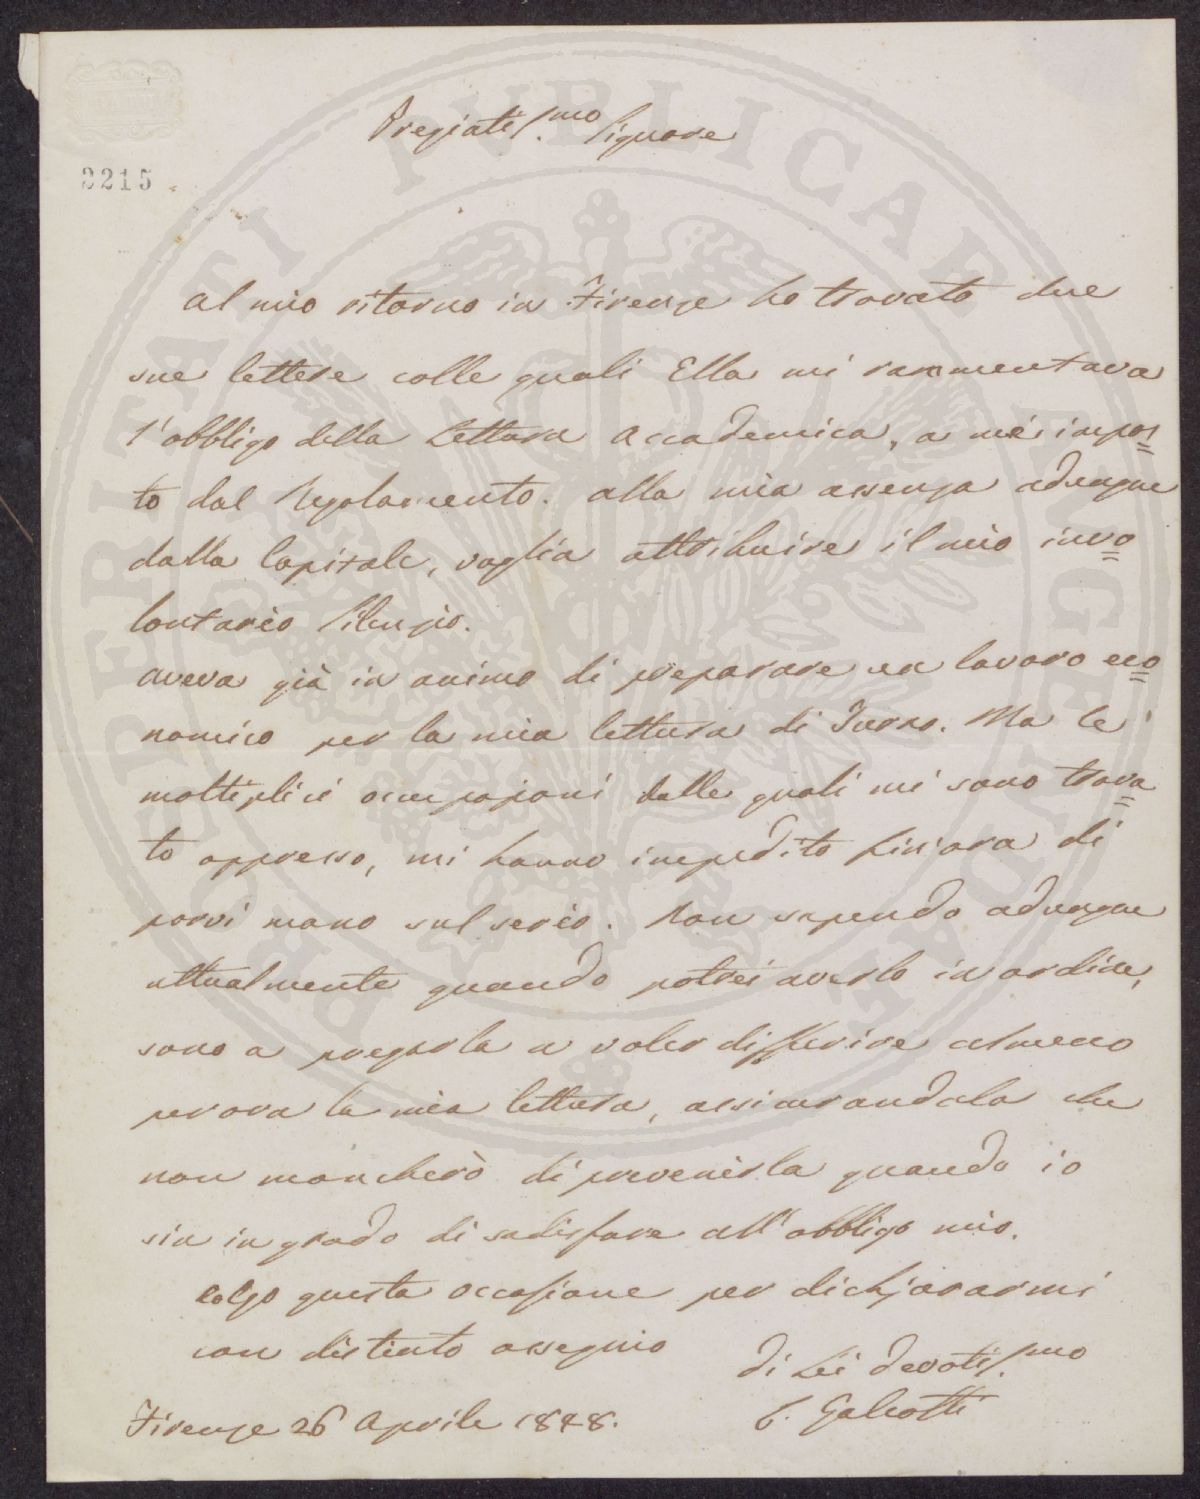 PROSPERITATI PUBLICAE AUGENDAE
Pregiatiss.mo Signore
2215
Al mio ritorno in Firenze ho trovato due
sue lettere colle quali Ella mi rammentava
l'obbligo della Lettura Accademica, a me impos=
to dal Regolamento. Alla mia assenza adunque
dalla Capitale, voglia attribuire il mio invo=
lontario silenzio.
Aveva già in animo di preparare un lavoro eco=
nomico per la mia lettura di Turno. Ma le
moltiplici occupazioni dalle quali mi sono trova=
to oppresso, mi hanno impedito finora di
porvi mano sul serio. Non sapendo adunque
attualmente quando potrei averlo in ordine,
sono a pregarla a voler differire almeno
per ora la mia lettura, assicurandola che
non mancherò di prevenirla quando io
sia in grado di sadisfare all'obbligo mio.
Colgo questa occasione per dichiararmi
con distinto ossequio
di Lei Devotiss.mo
Firenze 26 Aprile 1848.
L. Galeotti